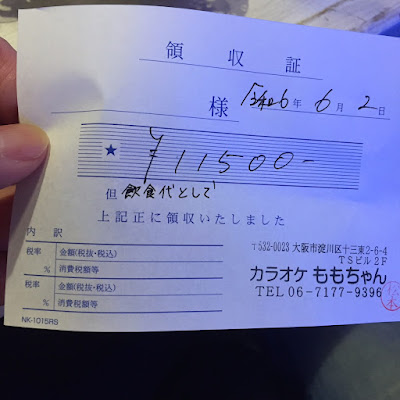 領収証
様 令和6年6月2日
★ ¥11500-
但 飲食代として
上記正に領収いたしました
内訳
税率 % 金額(税抜・税込)
消費税額等
税率 % 金額(税抜・税込)
消費税額等
NK-1015RS
〒532-0023 大阪市淀川区十三東2-6-4
TSビル2F
カラオケ ももちゃん
TEL 06-7177-9396